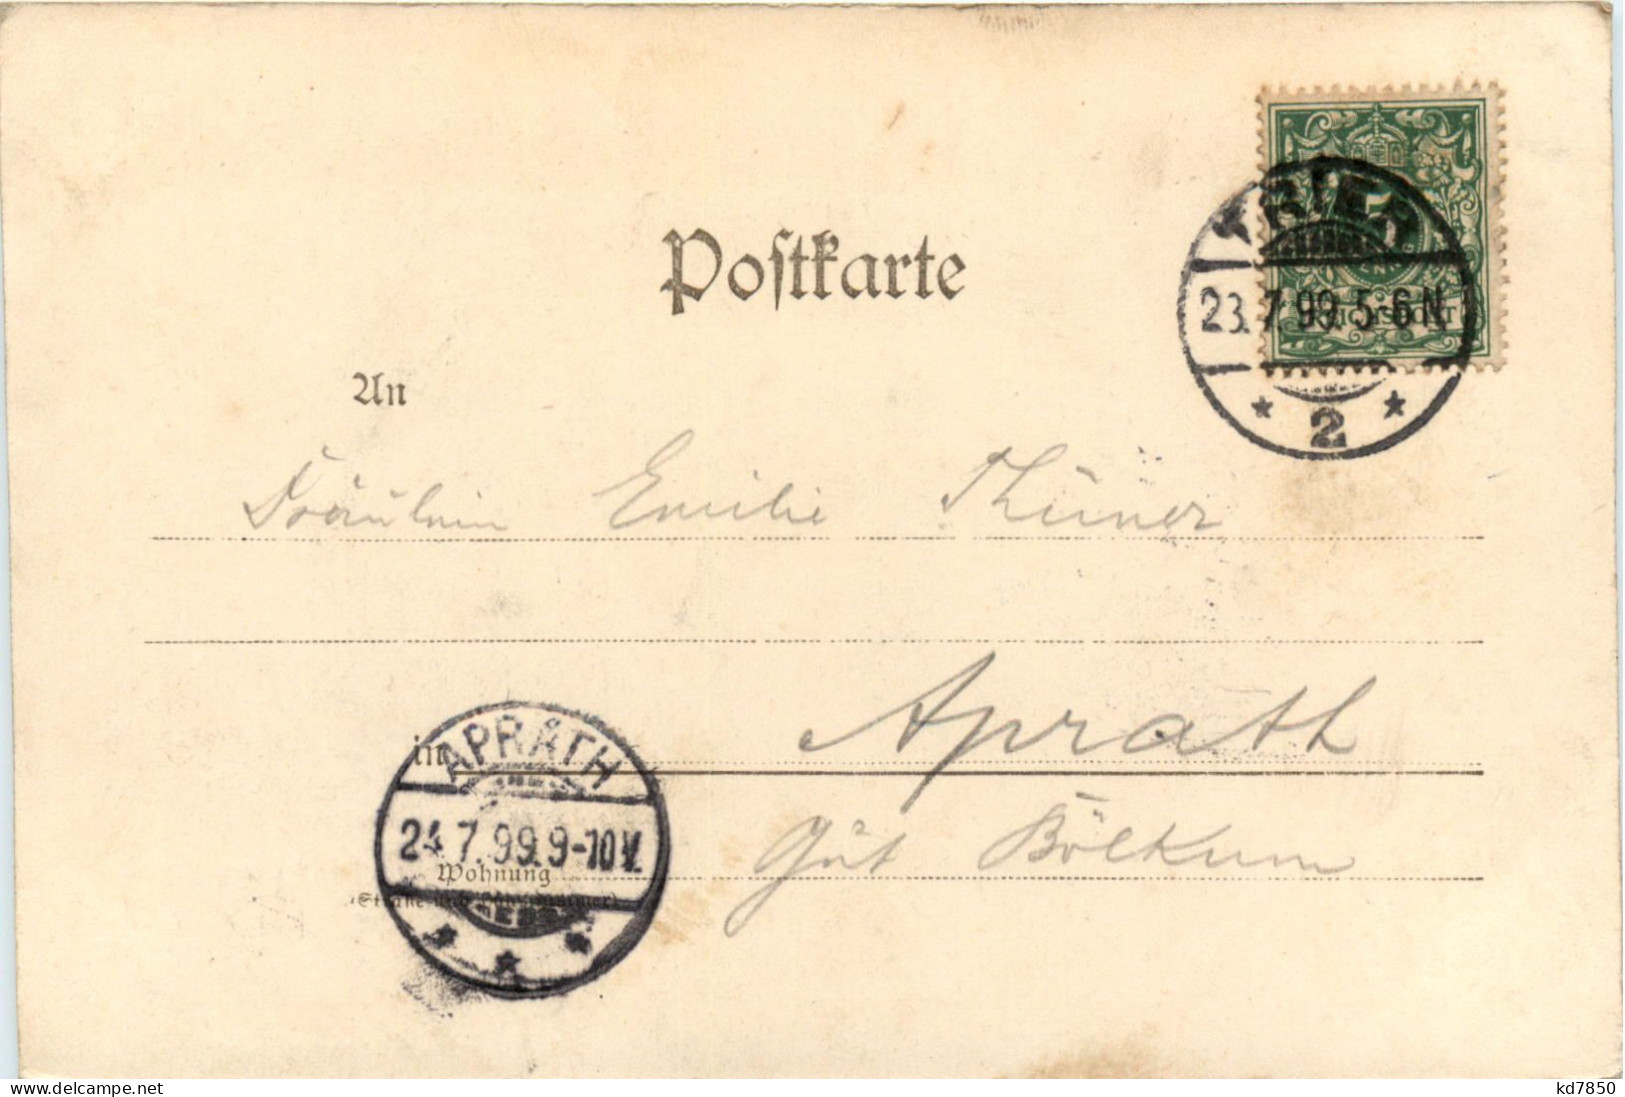 Postkarte
TRIER
5
23.7.99.5-6N
REICHSPOST
* 2 *
An
Fräulein Emilie Thüner
Aprath
in
APRATH
24.7.99.9-10V.
Gut Bölkum
Wohnung
(Straße und Hausnummer)
delcampe.net
kd7850